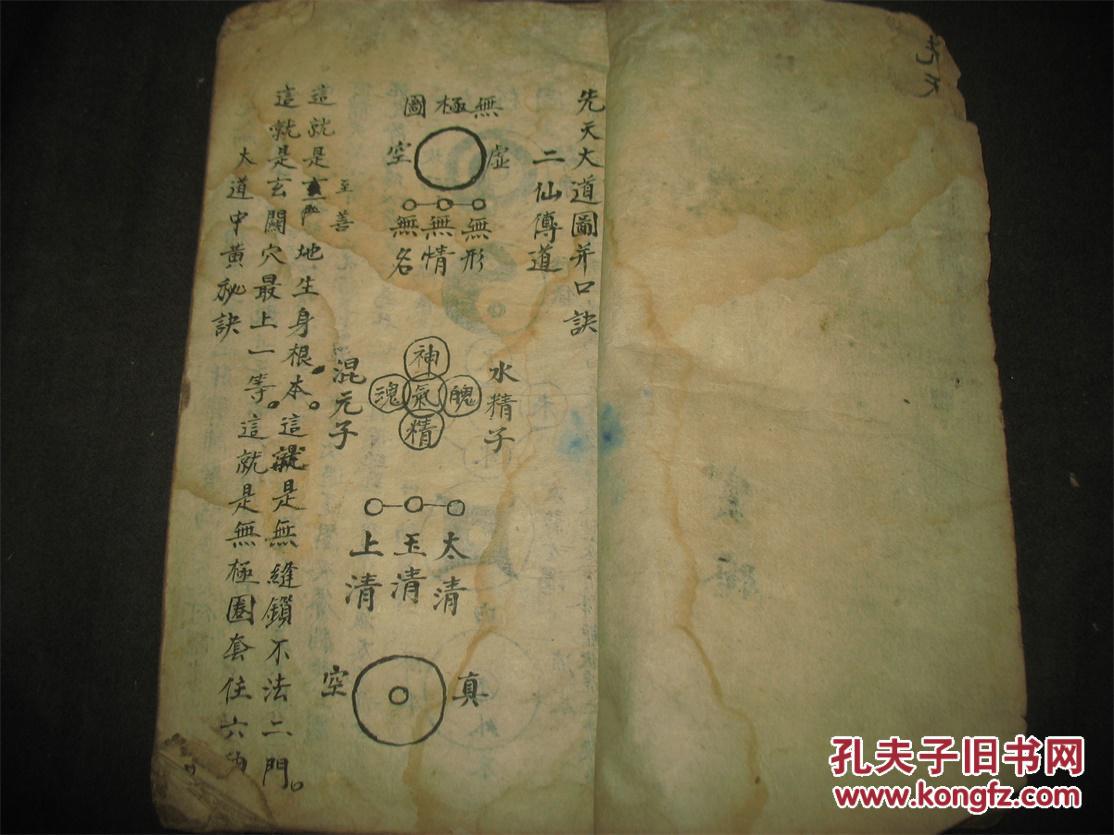 先天
先天大道圖并口訣
二仙傳道
無極圖
虛空
無形
無情
無名
水精子
神
魂氣魄
精
混元子
太清
玉清
上清
真空
至善
這就是玄門地生身根本。這就是無縫鎖不法二門。
這就是玄關穴最上一等。這就是無極圈套住六
大道中黃秘訣
孔夫子旧书网
www.kongfz.com